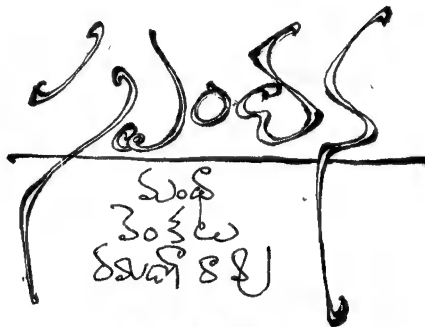 స్పందన
మంథా
వెంకట
రమణా రావు